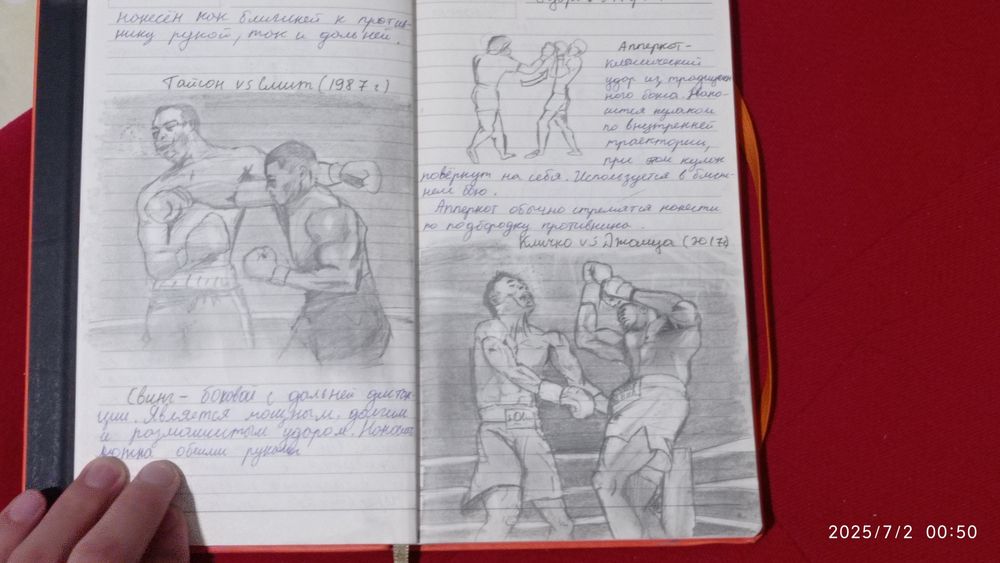 нанесён как ближней к против-
нику рукой, так и дальней.
Тайсон vs Смит (1987 г)
Свинг – боковой с дальней дистан-
ции. Является мощным, долгим
и размашистым ударом. Наносит
можно обеими руками
Апперкот –
классический
удар из традицион
ного бокса. Нано-
сится кулаком
по внутренней
траектории,
при этом кулак
повёрнут на себя. Используется в ближ-
нем бою.
Апперкот обычно стремятся нанести
по подбородку противника.
Кличко vs Джошуа (2017г)
2025/7/2 00:50